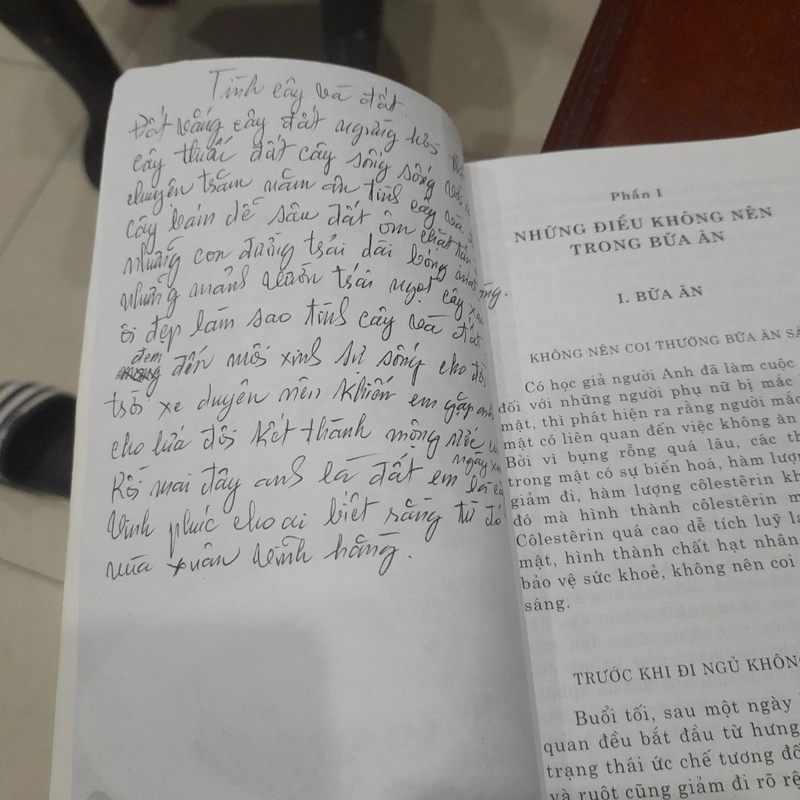 Tình cây và đất
Đất vắng cây đất ngừng hơi
cây thiếu đất cây sống sống với
chuyện trăm năm ân tình cây và
cây bám rễ sâu đất ôm chặt
những con đường trải dài bóng mát
những mảnh vườn trái ngọt cây
ôi đẹp làm sao tình cây và đất
đem đến môi xinh sự sống cho đời
trời xe duyên nên khiến em gặp anh
cho lứa đôi kết thành mộng ước
Rồi mai đây anh là đất em là
ngày
Vinh phúc cho ai biết rằng từ đó
mùa xuân vĩnh hằng.
Phần I
NHỮNG ĐIỀU KHÔNG NÊN
TRONG BỮA ĂN
I. BỮA ĂN
KHÔNG NÊN COI THƯỜNG BỮA ĂN
Có học giả người Anh đã làm cuộc
đối với những người phụ nữ bị mắc
mật, thì phát hiện ra rằng người mắc
mật có liên quan đến việc không ăn
Bởi vì bụng rỗng quá lâu, các
trong mật có sự biến hoá, hàm lượng
giảm đi, hàm lượng côlestêrin
đó mà hình thành côlestêrin
Côlestêrin quá cao dễ tích luỹ
mật, hình thành chất hạt nhân
bảo vệ sức khoẻ, không nên coi
sáng.
TRƯỚC KHI ĐI NGỦ KHÔNG
Buổi tối, sau một ngày
quan đều bắt đầu từ hưng
trạng thái ức chế tương đối
và ruột cũng giảm đi rõ